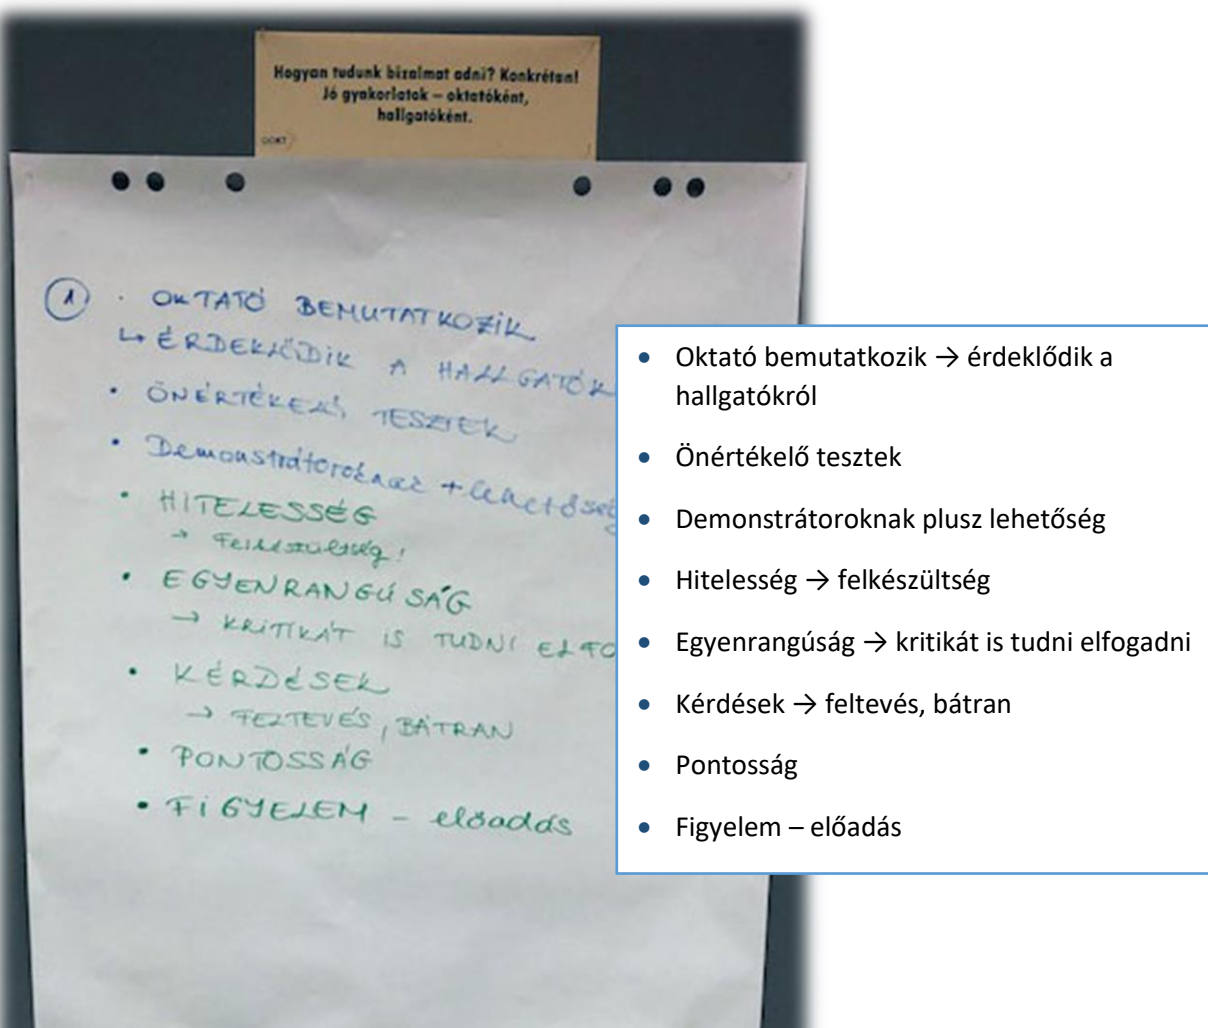 Hogyan tudunk bizalmat adni? Konkrétan!
Jó gyakorlatok – oktatóként,
hallgatóként.
OOKT
1 · OKTATÓ BEMUTATKOZIK
↳ ÉRDEKLŐDIK A HALLGATÓK
• ÖNÉRTÉKELŐ TESZTEK
• Demonstrátoroknak + lehetőség
• HITELESSÉG
→ Felkészültség!
• EGYENRANGÚSÁG
→ KRITIKÁT IS TUDNI ELFO
• KÉRDÉSEK
→ FELTEVÉS, BÁTRAN
• PONTOSSÁG
• FIGYELEM – előadás
• Oktató bemutatkozik → érdeklődik a
hallgatókról
• Önértékelő tesztek
• Demonstrátoroknak plusz lehetőség
• Hitelesség → felkészültség
• Egyenrangúság → kritikát is tudni elfogadni
• Kérdések → feltevés, bátran
• Pontosság
• Figyelem – előadás